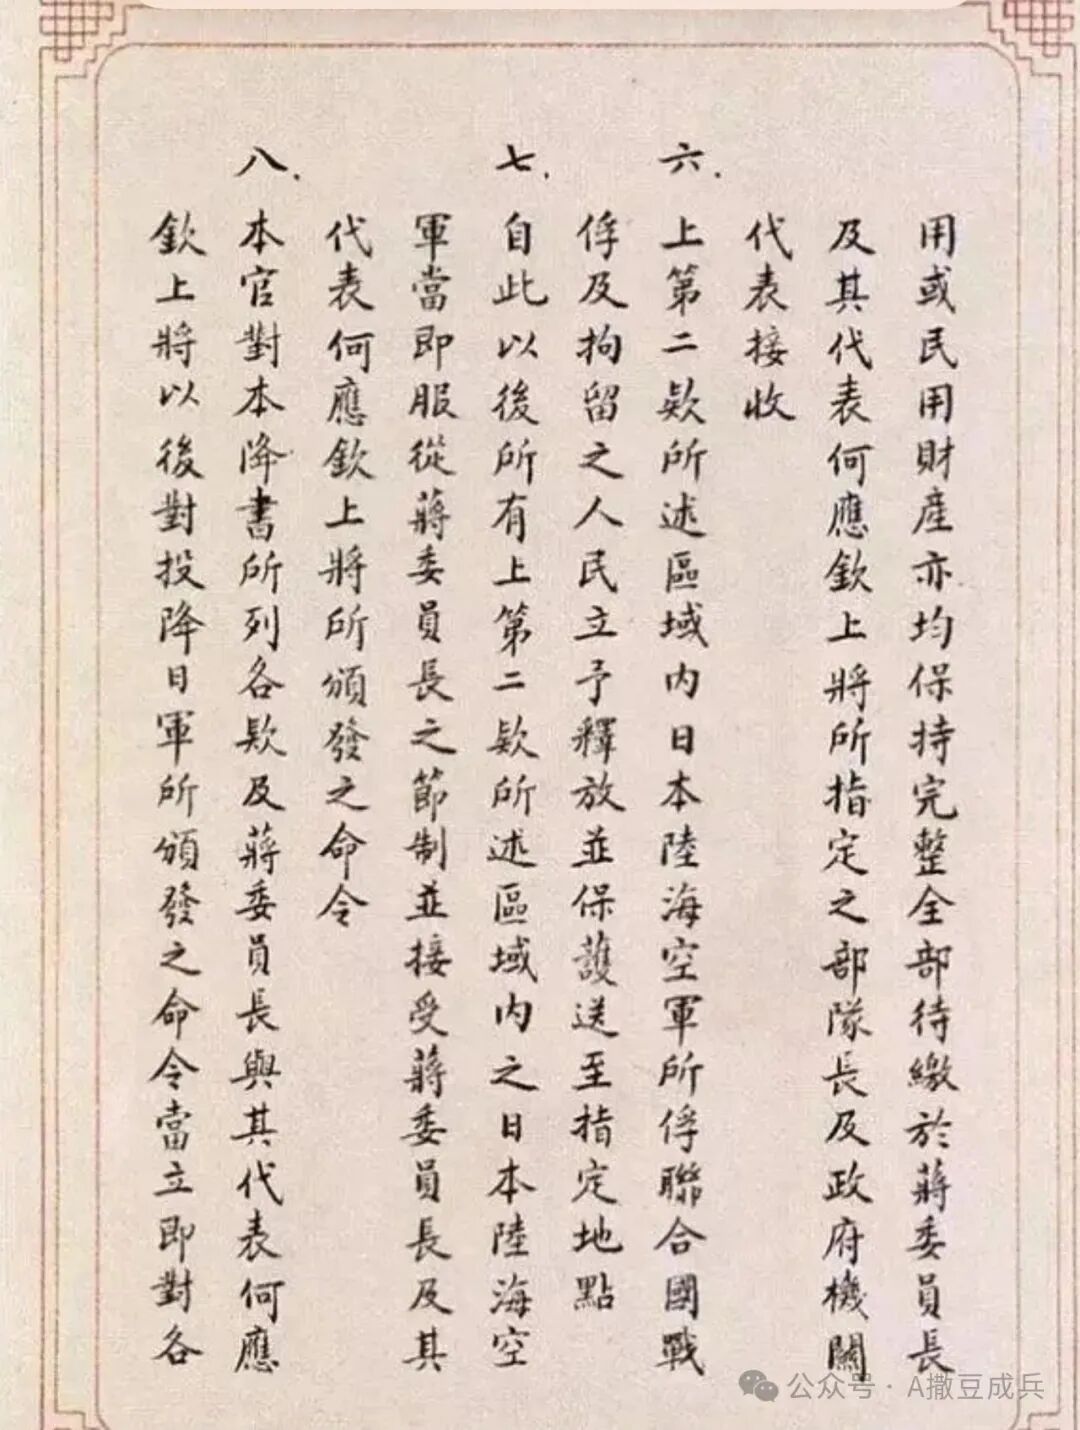 用或民用財產亦均保持完整全部待繳於蔣委員長
及其代表何應欽上將所指定之部隊長及政府機關
代表接收
六.上第二欵所述區域內日本陸海空軍所俘聯合國戰
俘及拘留之人民立予釋放並保護送至指定地點
七.自此以後所有上第二欵所述區域內之日本陸海空
軍當即服從蔣委員長之節制並接受蔣委員長及其
代表何應欽上將所頒發之命令
八.本官對本降書所列各欵及蔣委員長與其代表何應
欽上將以後對投降日軍所頒發之命令當立即對各
公众号·A撒豆成兵